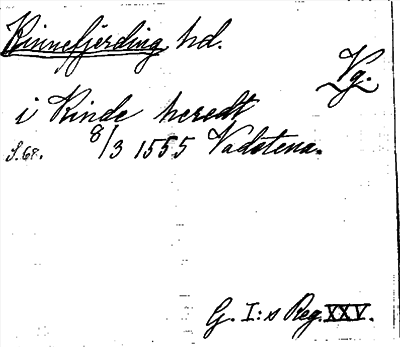 Kinnefjerding hd.
Vg.
i Kinde heredt
S. 68. 8/3 1555 Vadstena.
G. I:s Reg. XXV.